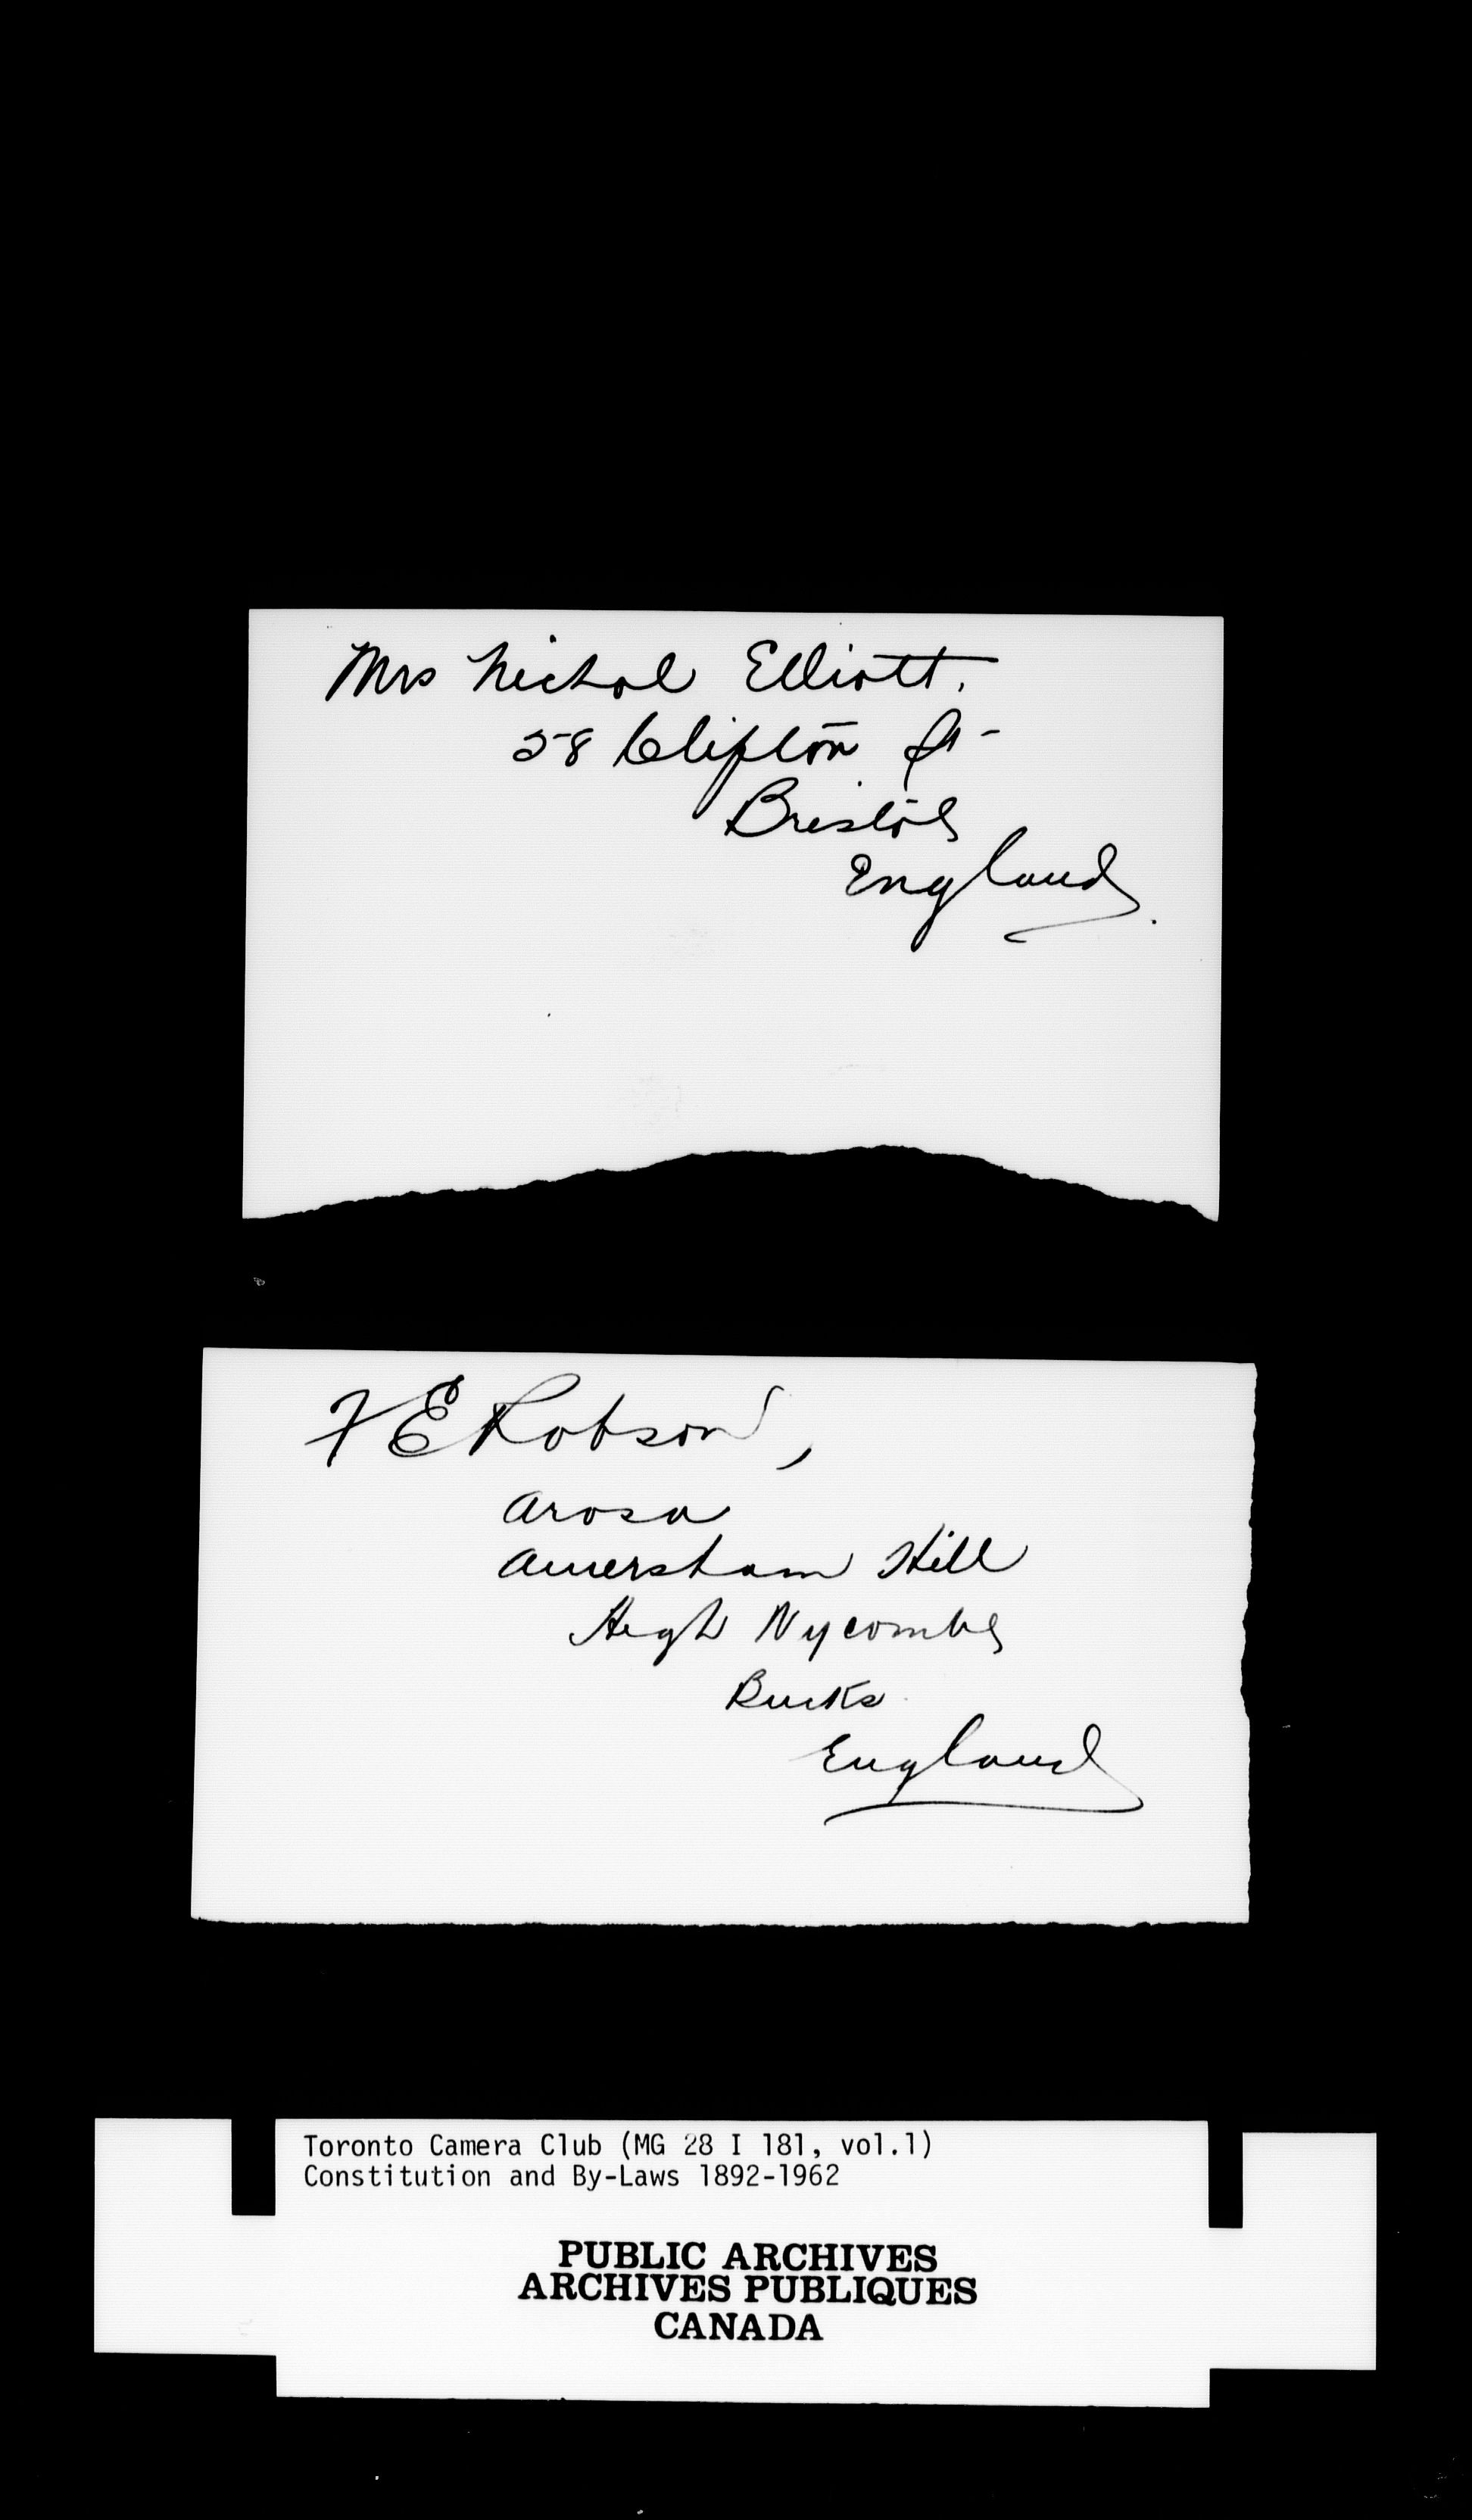 Mrs Nichol Elliott.
58 Clifton St-
Bristol
England.
F E Robson,
Arosa
Amersham Hill
High Wycombe
Bucks
England
Toronto Camera Club (MG 28 I 181, vol.1)
Constitution and By-Laws 1892-1962
PUBLIC ARCHIVES
ARCHIVES PUBLIQUES
CANADA